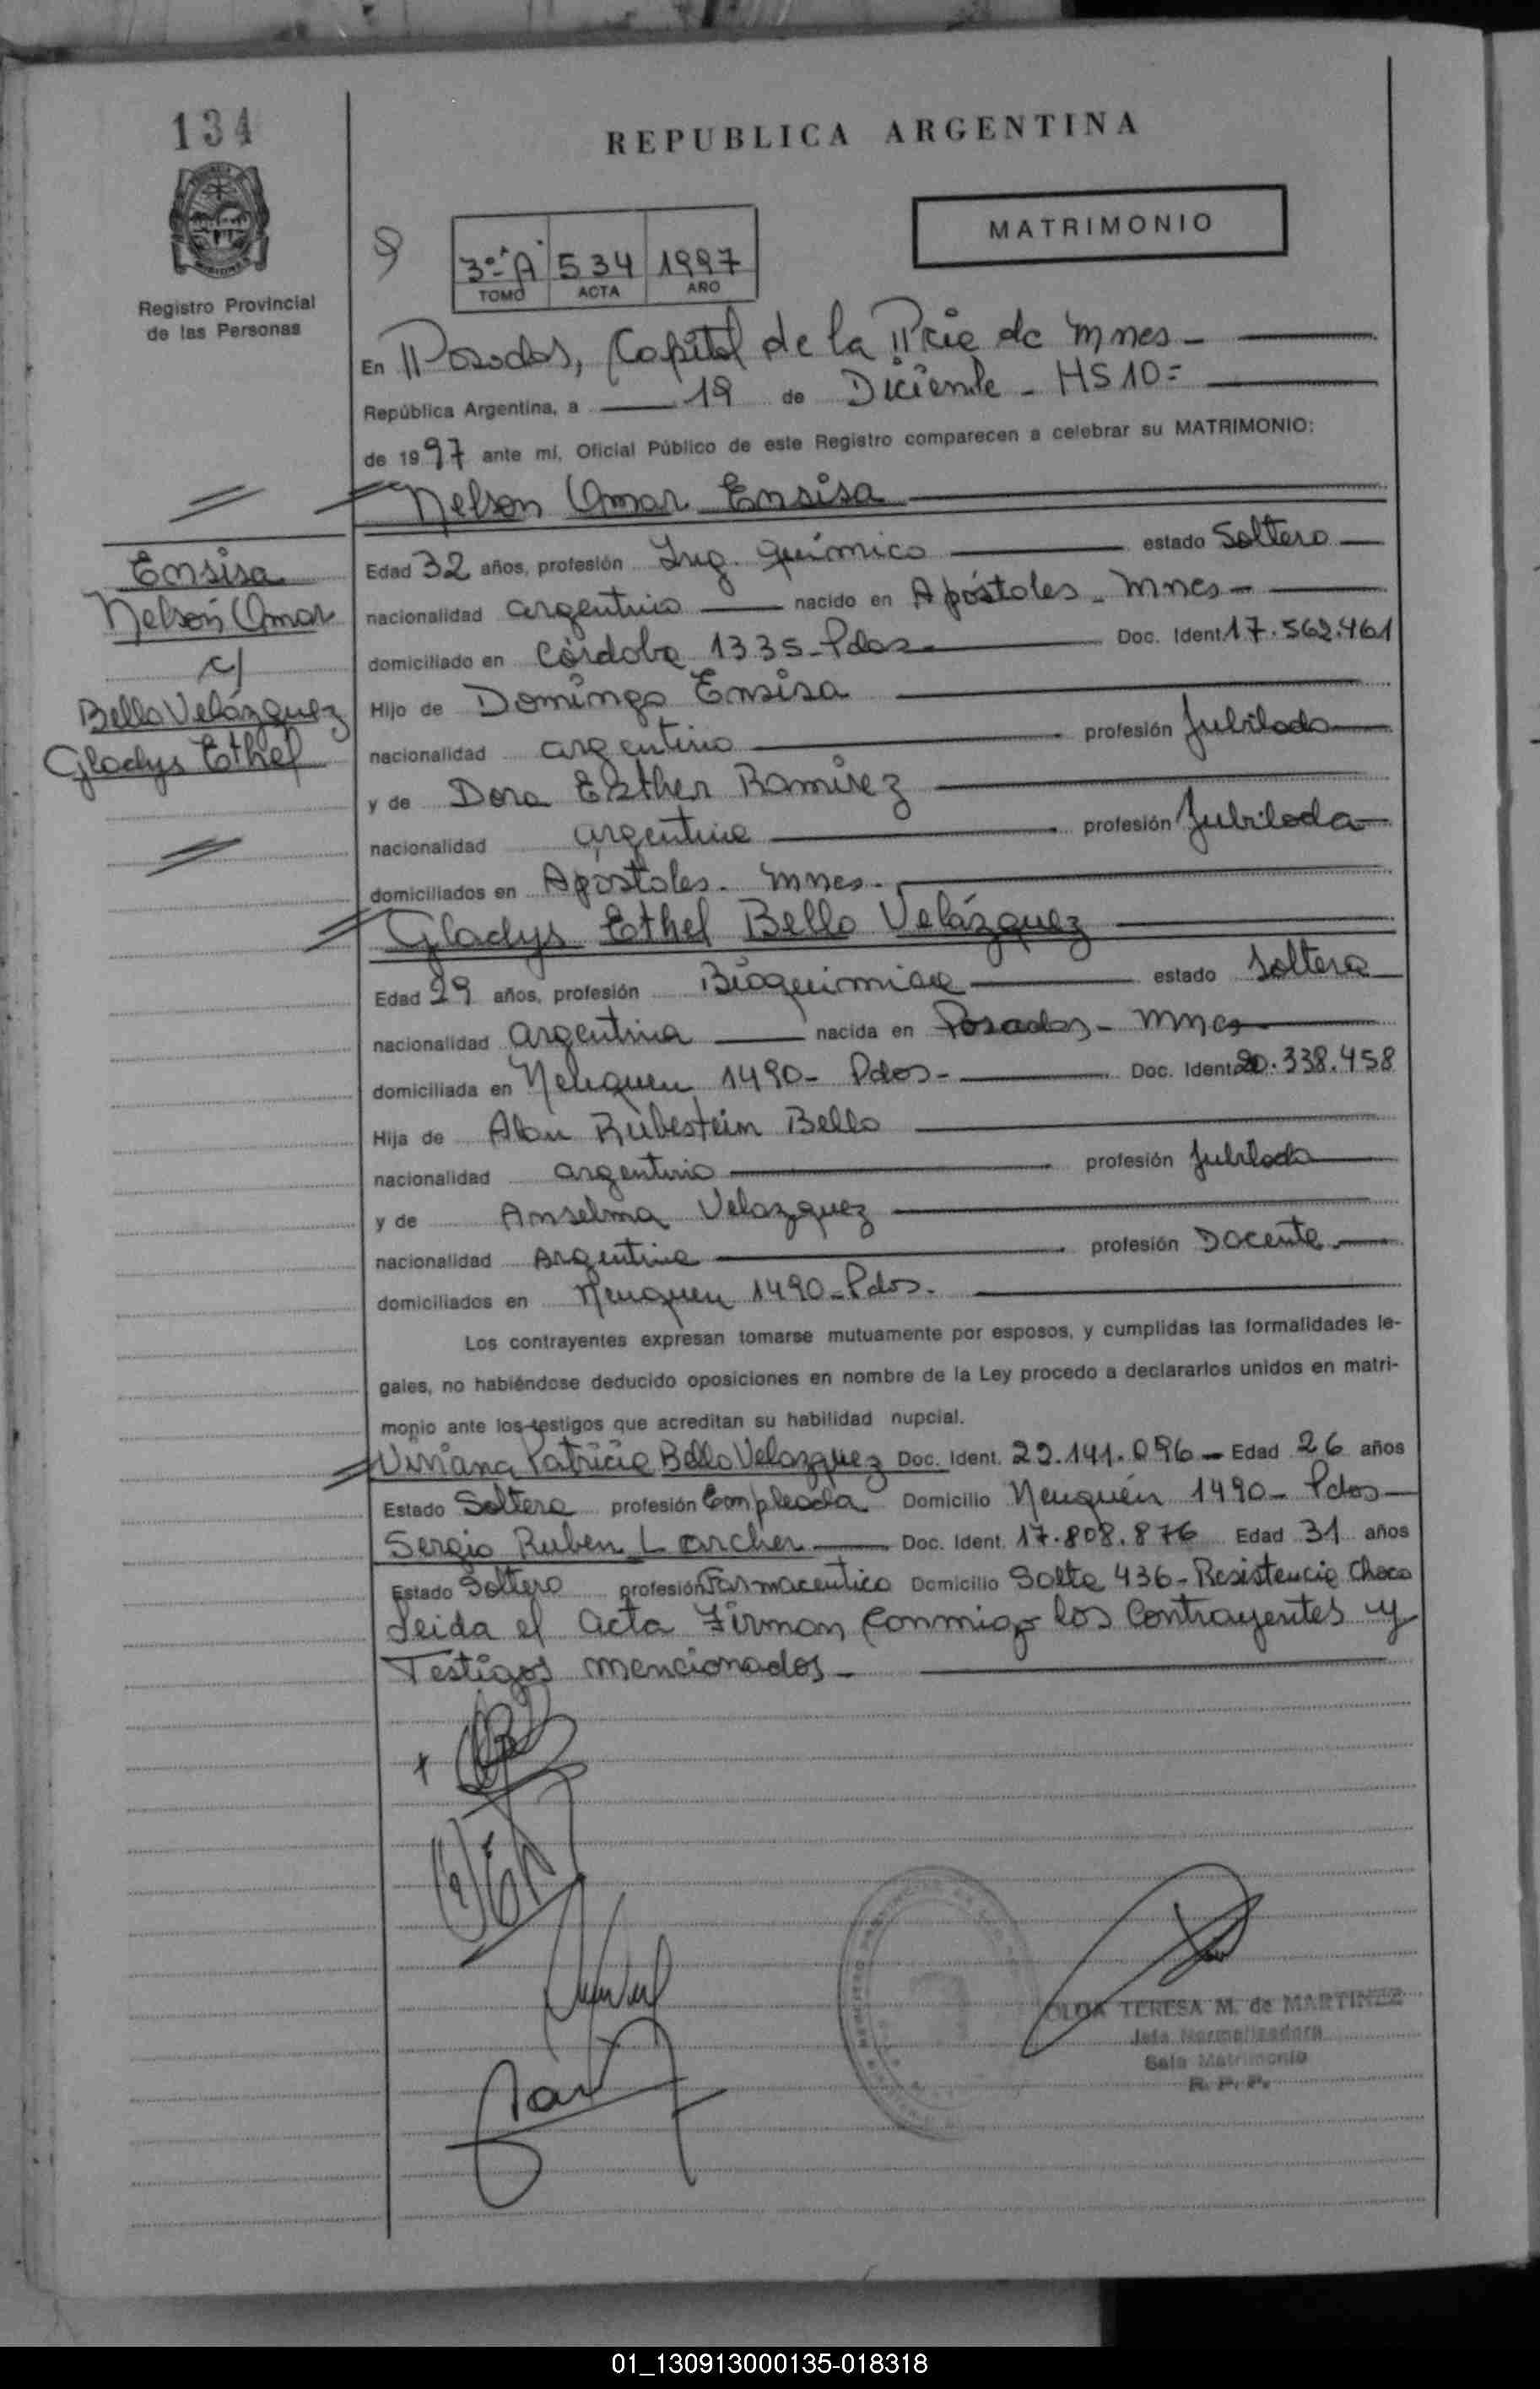 134
REPUBLICA ARGENTINA
MATRIMONIO
3º A 534 1997
TOMO ACTA AÑO
Registro Provincial
de las Personas
En Posadas, Capital de la Pcie de Mnes -
República Argentina, a 19 de Diciembre - HS 10=
de 1997 ante mí, Oficial Público de este Registro comparecen a celebrar su MATRIMONIO:
Nelson Omar Ensisa
Edad 32 años, profesión Ing. Químico estado Soltero
nacionalidad argentino nacido en Apóstoles - Mnes -
domiciliado en Córdoba 1335 - Pdas - Doc. Ident. 17.562.461
Hijo de Domingo Ensisa
nacionalidad argentino profesión Jubilado
y de Dora Esther Ramirez
nacionalidad argentina profesión Jubilada
domiciliados en Apostoles - Mnes -
Ensisa
Nelson Omar
c/
Bello Velázquez
Gladys Ethel
Gladys Ethel Bello Velázquez
Edad 29 años, profesión Bioquimica estado Soltera
nacionalidad argentina nacida en Posadas - Mnes
domiciliada en Neuquen 1490 - Pdas - Doc. Ident. 20.338.458
Hija de Alan Rubestein Bello
nacionalidad argentino profesión Jubilado
y de Anselma Velazquez
nacionalidad Argentina profesión Docente
domiciliados en Neuquen 1490 - Pdas -
Los contrayentes expresan tomarse mutuamente por esposos, y cumplidas las formalidades le-
gales, no habiéndose deducido oposiciones en nombre de la Ley procedo a declararlos unidos en matri-
monio ante los testigos que acreditan su habilidad nupcial.
Viviana Patricia Bello Velazquez Doc. Ident. 22.141.096 - Edad 26 años
Estado Soltera profesión Empleada Domicilio Neuquén 1490 - Pdas
Sergio Ruben Larcher Doc. Ident. 17.808.876 Edad 31 años
Estado Soltero profesión Farmaceutico Domicilio Salta 436 - Resistencia Chaco
Leida el acta Firman conmigo los Contrayentes y
Testigos mencionados -
OLGA TERESA M. de MARTINEZ
Jefa Normalizadora
Sala Matrimonio
R. P. P.
01_130913000135-018318